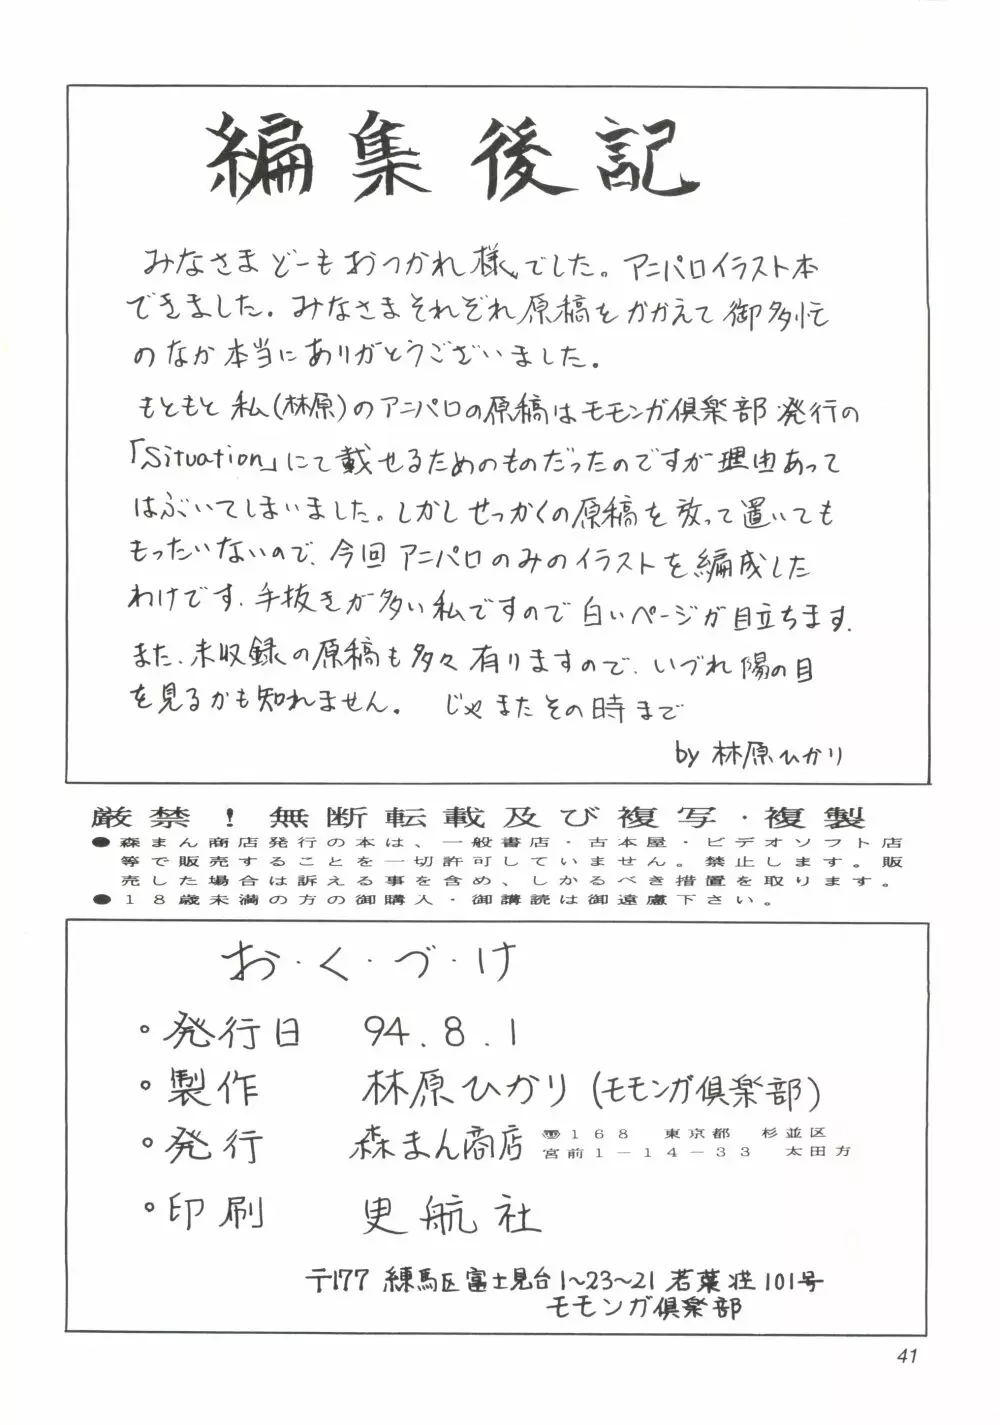 編集後記
みなさまどーもおつかれ様でした。アニパロイラスト本
できました。みなさまそれぞれ原稿をかかえて御多忙
のなか本当にありがとうございました。
もともと私(林原)のアニパロの原稿はモモンガ倶楽部発行の
「Situation」にて載せるためのものだったのですが理由あって
はぶいてしまいました。しかしせっかくの原稿を放って置いても
もったいないので、今回アニパロのみのイラストを編成した
わけです。手抜きが多い私ですので白いページが目立ちます。
また、未収録の原稿も多々有りますので、いづれ陽の目
を見るかも知れません。 じゃまたその時まで
by 林原ひかり
厳禁!無断転載及び複写・複製
●森まん商店発行の本は、一般書店・古本屋・ビデオソフト店
等で販売することを一切許可していません。禁止します。販
売した場合は訴える事を含め、しかるべき措置を取ります。
●18歳未満の方の御購入・御講読は御遠慮下さい。
お・く・づ・け
○発行日 94.8.1
○製作 林原ひかり(モモンガ倶楽部)
○発行 森まん商店 168 東京都 杉並区
宮前1-14-33 太田方
○印刷 吏航社
〒177 練馬区富士見台1~23~21 若葉荘101号
モモンガ倶楽部
41